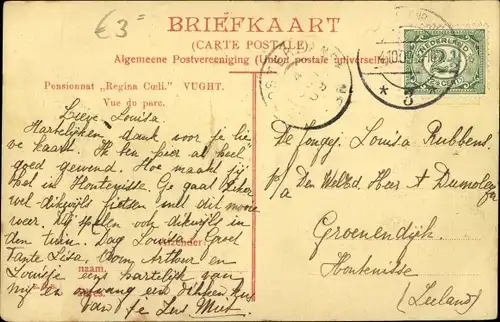 €3=
BRIEFKAART
(CARTE POSTALE)
Algemeene Postvereeniging (Union postale universelle)
Pensionnat „Regina Cœli.” VUGHT.
Vue du parc.
NEDERLAND
2½
CENT
3
Lieve Louisa.
Hartelijken dank voor je lie
ve kaart. Ik ben hier al heel
goed gewend. Hoe maakt jij
het in Hontenisse. Je gaat zeker
wel dikwijls fietsen met dit mooie
weer. Wij spelen ook dikwijls in
den tuin. Dag Louisa. Groet
tante Lisa, Oom Arthur en
Louisje eens hartelijk van
mij en ontvang een dikken kus
van je
afzender
naam.
adres.
De Jongej. Louisa Rubbens.
p/a Den WelEd. Heer A Dumoleyn
Groenendijk.
Hontenisse
(Zeeland)